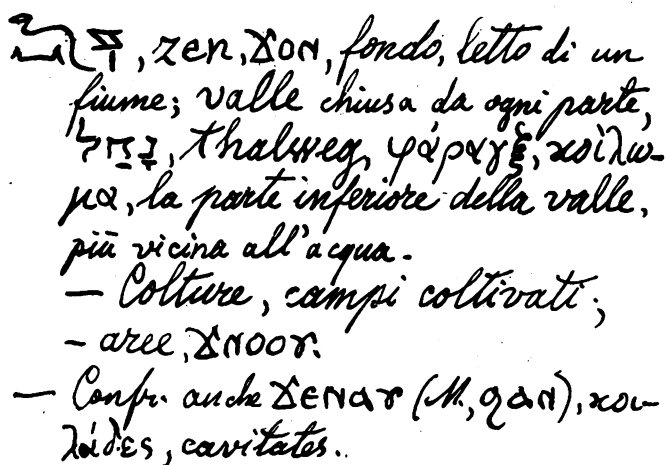 , zen, ϪⲟⲚ, fondo, letto di un
fiume; valle chiusa da ogni parte,
נַחַל, thalweg, φάραγξ, κοίλω-
μα, la parte inferiore della valle,
più vicina all'acqua.
— Colture, campi coltivati;
– aree, ϪⲚⲞⲞⲨ.
— Confr. anche ϪⲈⲚⲀⲨ (M, ϤⲀⲚ), κοι-
λάδες, cavitates.